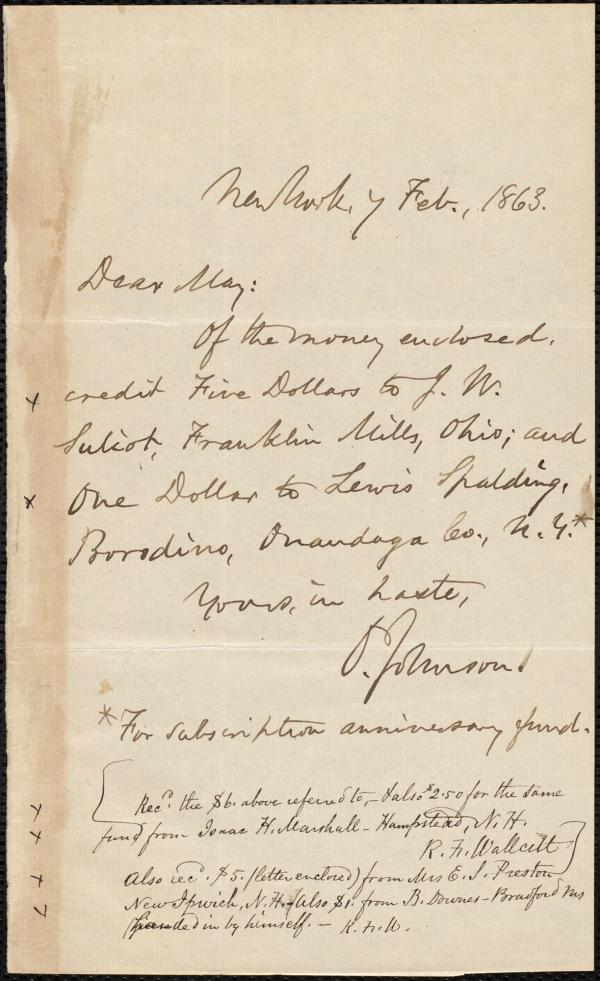 New York, 7 Feb., 1863.
Dear May:
Of the money enclosed,
x credit Five Dollars to J. W.
Suliot, Franklin Mills, Ohio; and
x One Dollar to Lewis Spalding,
Borodino, Onandaga Co., N.Y.*
Yours, in haste,
O. Johnson.
*For subscription anniversary fund.
[Recd. the $6. above referred to,- & also $2.50 for the same
fund from Isaac H. Marshall - Hampstead, N.H.
R. F. Wallcutt]
Also recd. $5. (letter enclosed) from Mrs E. S. Preston
New Ipswich, N.H. - (also $1. from B. Downes - Bradford Ms
handed in by himself. - R. F. W.